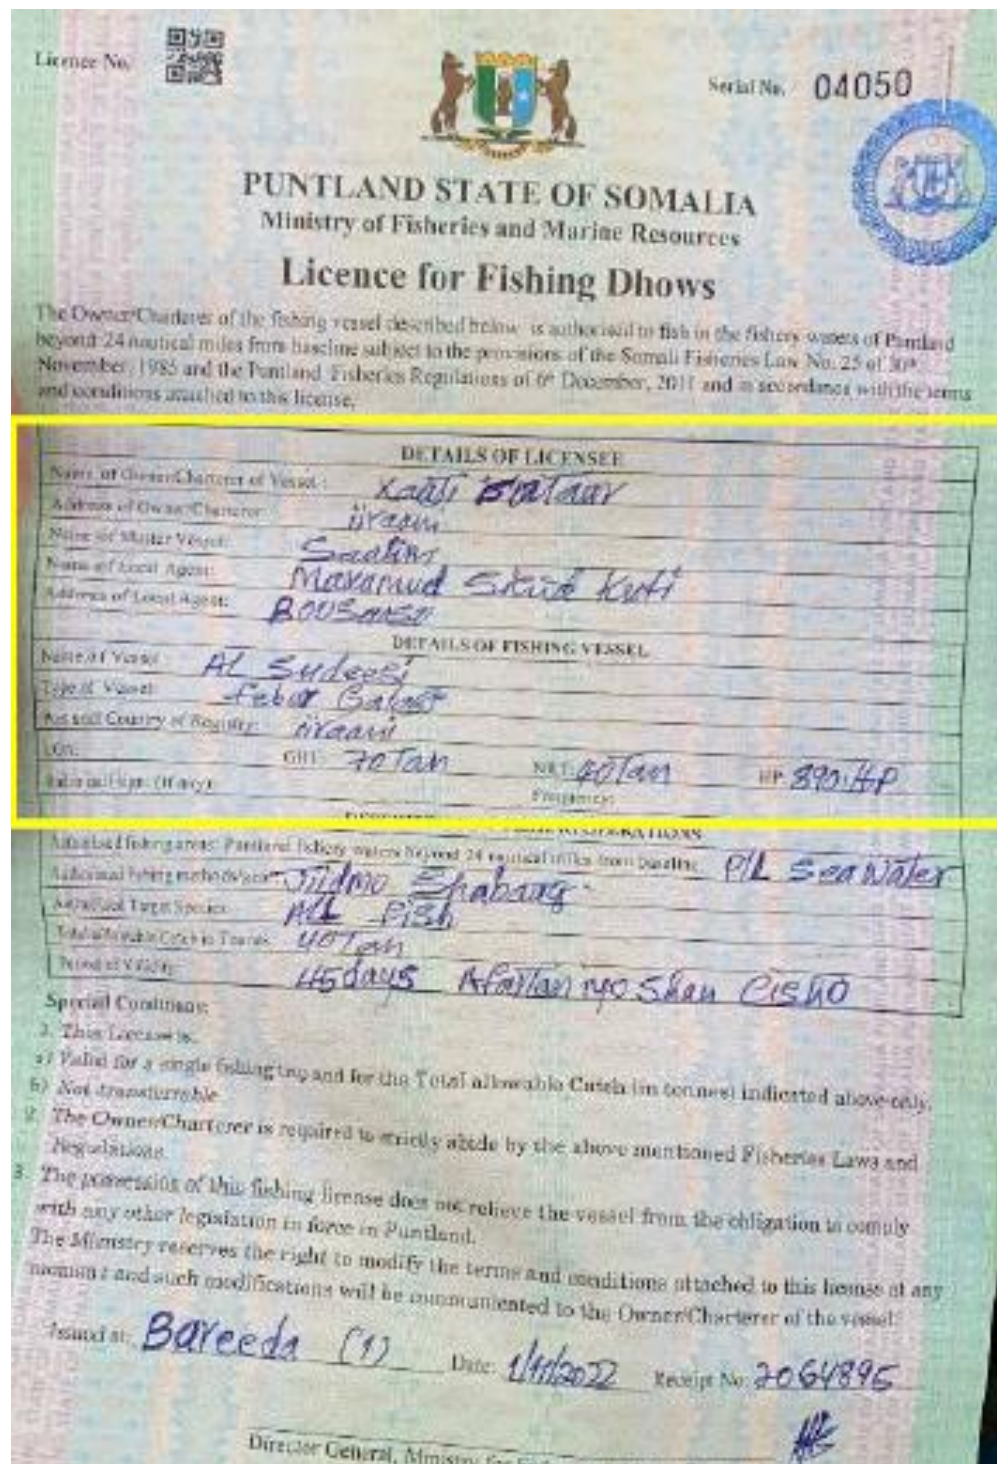 Licence No.
Serial No. 04050
PUNTLAND STATE OF SOMALIA
Ministry of Fisheries and Marine Resources
Licence for Fishing Dhows
The Owner/Charterer of the fishing vessel described below is authorised to fish in the fishery waters of Puntland
beyond 24 nautical miles from baseline subject to the provisions of the Somali Fisheries Law No. 25 of 30th
November, 1985 and the Puntland Fisheries Regulations of 6th December, 2011 and in accordance with the terms
and conditions attached to this license.
DETAILS OF LICENSEE
Name of Owner/Charterer of Vessel:
Address of Owner/Charterer: iiraani
Name of Master Vessel: Saalim
Name of Local Agent: Maxamud
Address of Local Agent:
DETAILS OF FISHING VESSEL
Name of Vessel: AL
Type of Vessel:
and Country of Registry: iiraani
GRT: 70 Tan NRT: 40 Tan HP: 890.HP
Radio call sign: (If any): Frequency:
OPERATIONS
Authorised fishing areas: Puntland fishery waters beyond 24 nautical miles from baseline P/L Sea Water
Authorised fishing methods/gear: Jildmo Shabaag
Authorised Target Species: ALL Fish
Total allowable Catch in Tonnes: 40 Tan
Period of Validity: 45 days Afartan iyo Shan Cisho
Special Conditions:
1. This License is:
a) Valid for a single fishing trip and for the Total allowable Catch (in tonnes) indicated above only.
b) Not transferrable
2. The Owner/Charterer is required to strictly abide by the above mentioned Fisheries Laws and
Regulations.
3. The possession of this fishing license does not relieve the vessel from the obligation to comply
with any other legislation in force in Puntland.
The Ministry reserves the right to modify the terms and conditions attached to this license at any
moment and such modifications will be communicated to the Owner/Charterer of the vessel.
Issued at: Bareeda (1) Date: 1/11/2022 Receipt No: 2064895
Director General, Ministry for